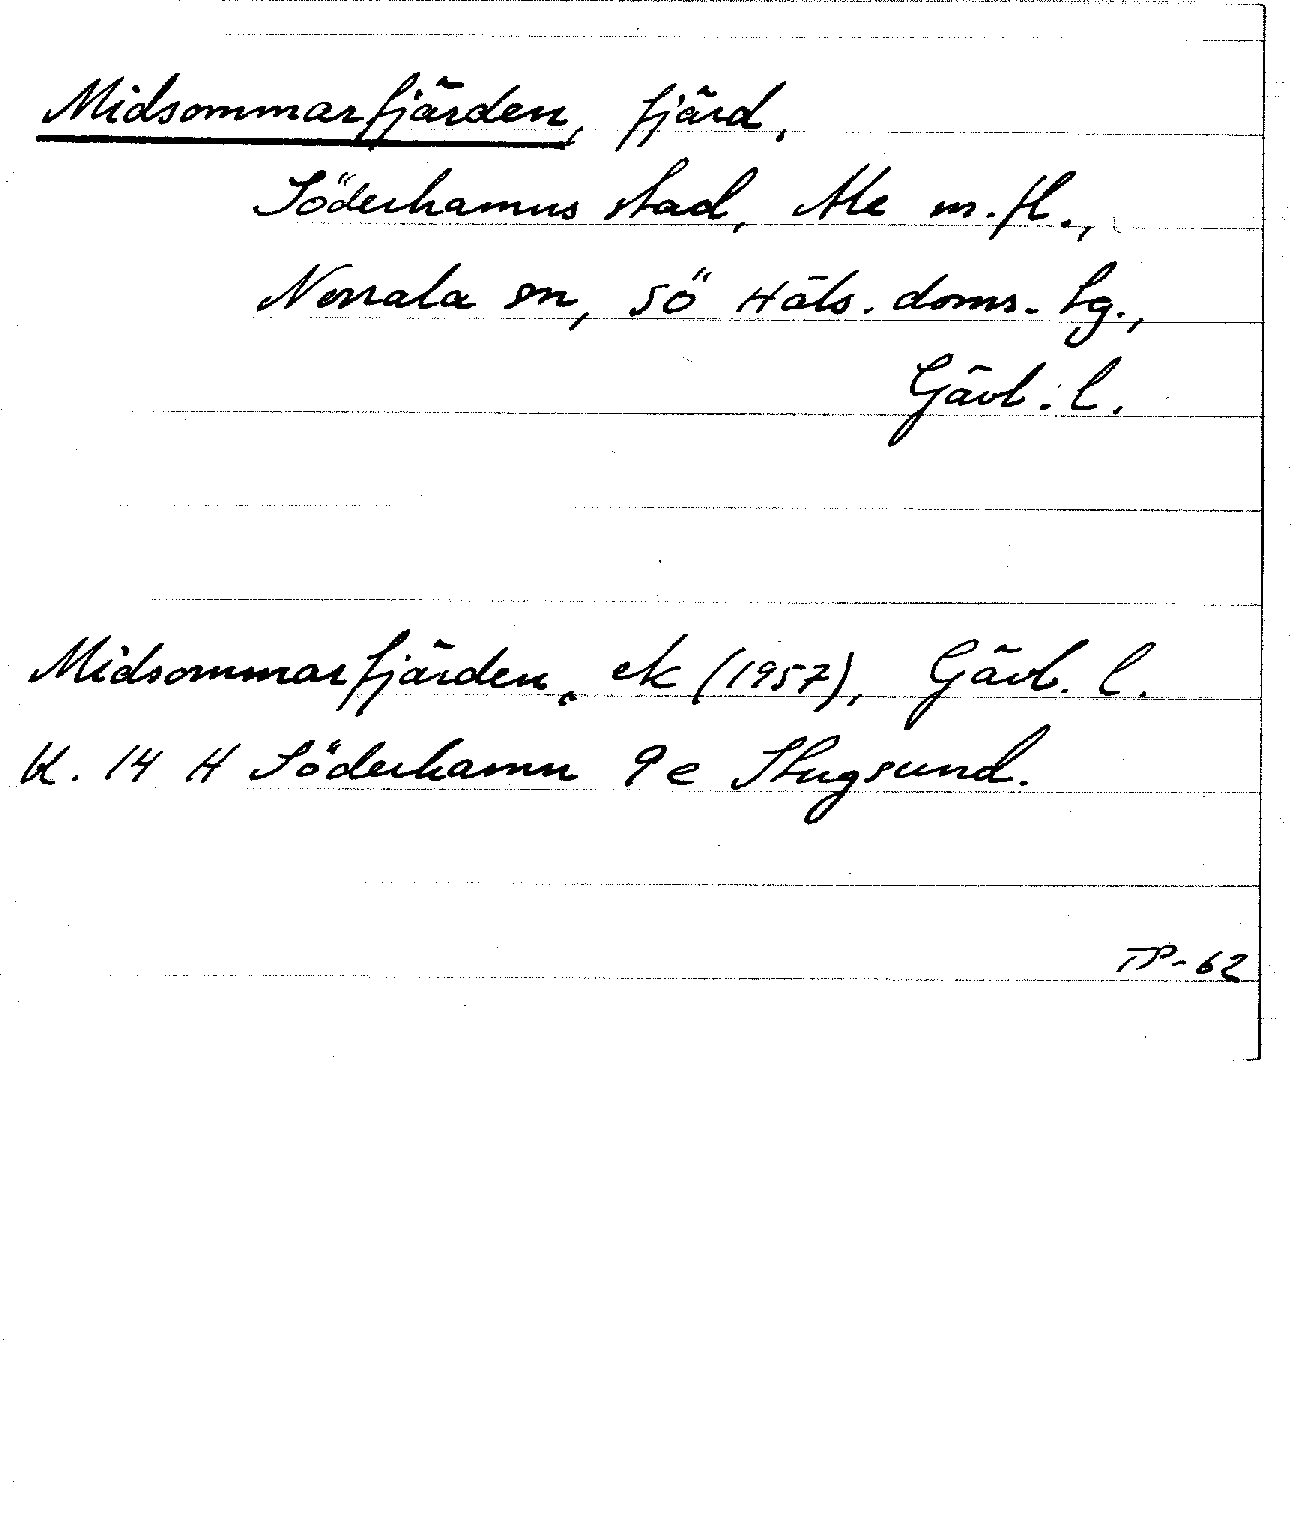 Midsommarfjärden, fjärd,
Söderhamns stad, Ale m.fl.,
Norrala sn, Sö Häls. doms. lg.,
Gävl. l.
Midsommarfjärden, ek (1957), Gävl. l.
K. 14 H Söderhamn 9 e Stugsund.
TP-62